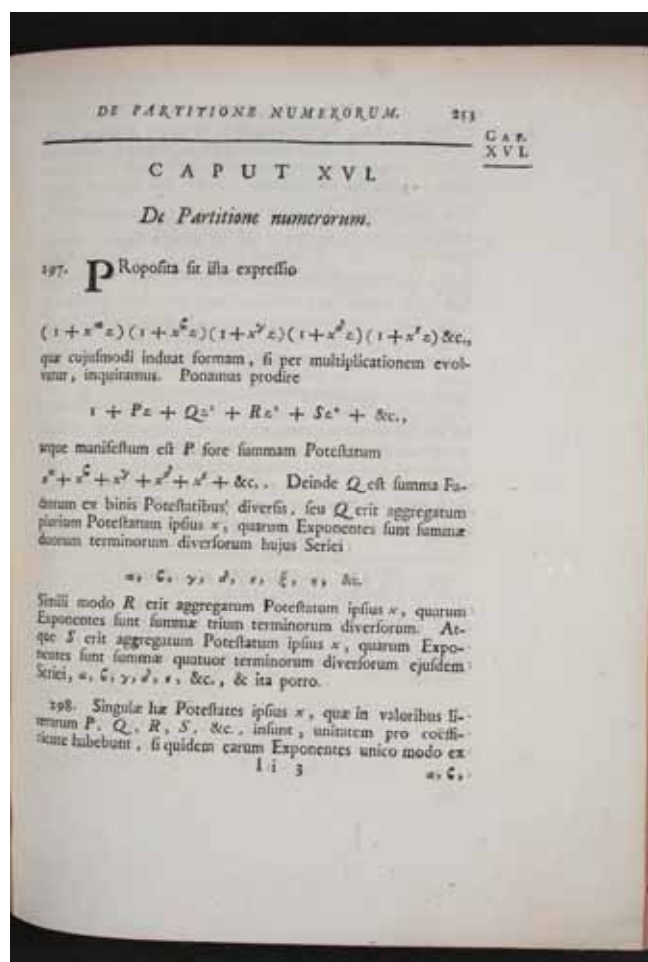 DE PARTITIONE NUMERORUM. 253
CAP. XVI.
CAPUT XVI.
De Partitione numerorum.
197. PRoposita sit ista expressio
(1+x^α z)(1+x^ϐ z)(1+x^γ z)(1+x^δ z)(1+x^ε z) &c.,
quæ cujusmodi induat formam, si per multiplicationem evol-
vatur, inquiramus. Ponamus prodire
1 + Pz + Qz² + Rz³ + Sz⁴ + &c.,
atque manifestum est P fore summam Potestatum
x^α + x^ϐ + x^γ + x^δ + x^ε + &c.. Deinde Q est summa Fa-
ctorum ex binis Potestatibus diversis, seu Q erit aggregatum
plurium Potestatum ipsius x, quarum Exponentes sunt summæ
duorum terminorum diversorum hujus Seriei
α, ϐ, γ, δ, ε, ξ, η, &c.
Simili modo R erit aggregatum Potestatum ipsius x, quarum
Exponentes sunt summæ trium terminorum diversorum. At-
que S erit aggregatum Potestatum ipsius x, quarum Expo-
nentes sunt summæ quatuor terminorum diversorum ejusdem
Seriei, α, ϐ, γ, δ, ε, &c., & ita porro.
198. Singulæ hæ Potestates ipsius x, quæ in valoribus li-
terarum P, Q, R, S, &c., insunt, unitatem pro coëffi-
ciente habebunt, si quidem earum Exponentes unico modo ex
Ii 3 α, ϐ,